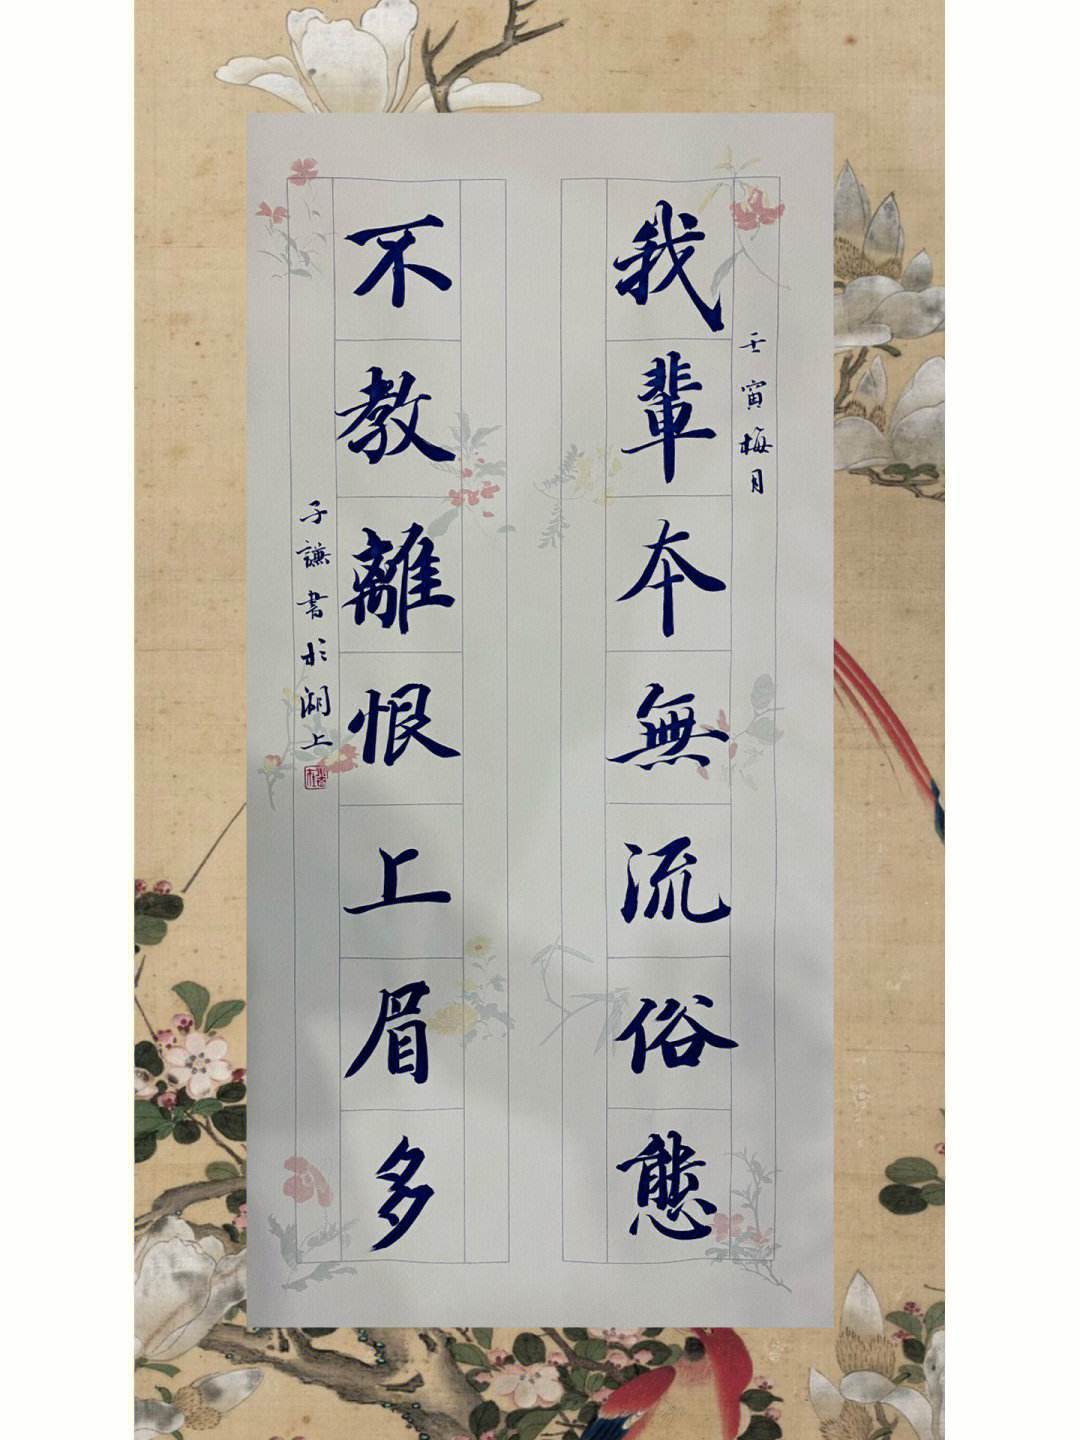 壬寅梅月
我輩本無流俗態
不教離恨上眉多
子謙書於湖上